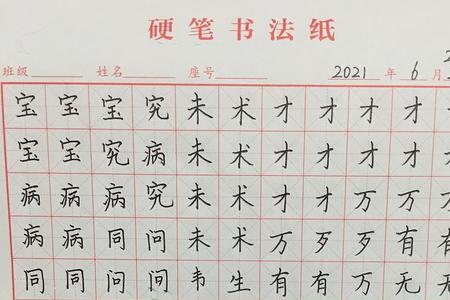 硬笔书法纸
班级 姓名 座号 2021年6月
宝宝宝究未术才才才才
宝宝究病未术才才才才
病病病究未术才才万万万
病病同问未术万歹歹有有
同同问问韦生有有万无无